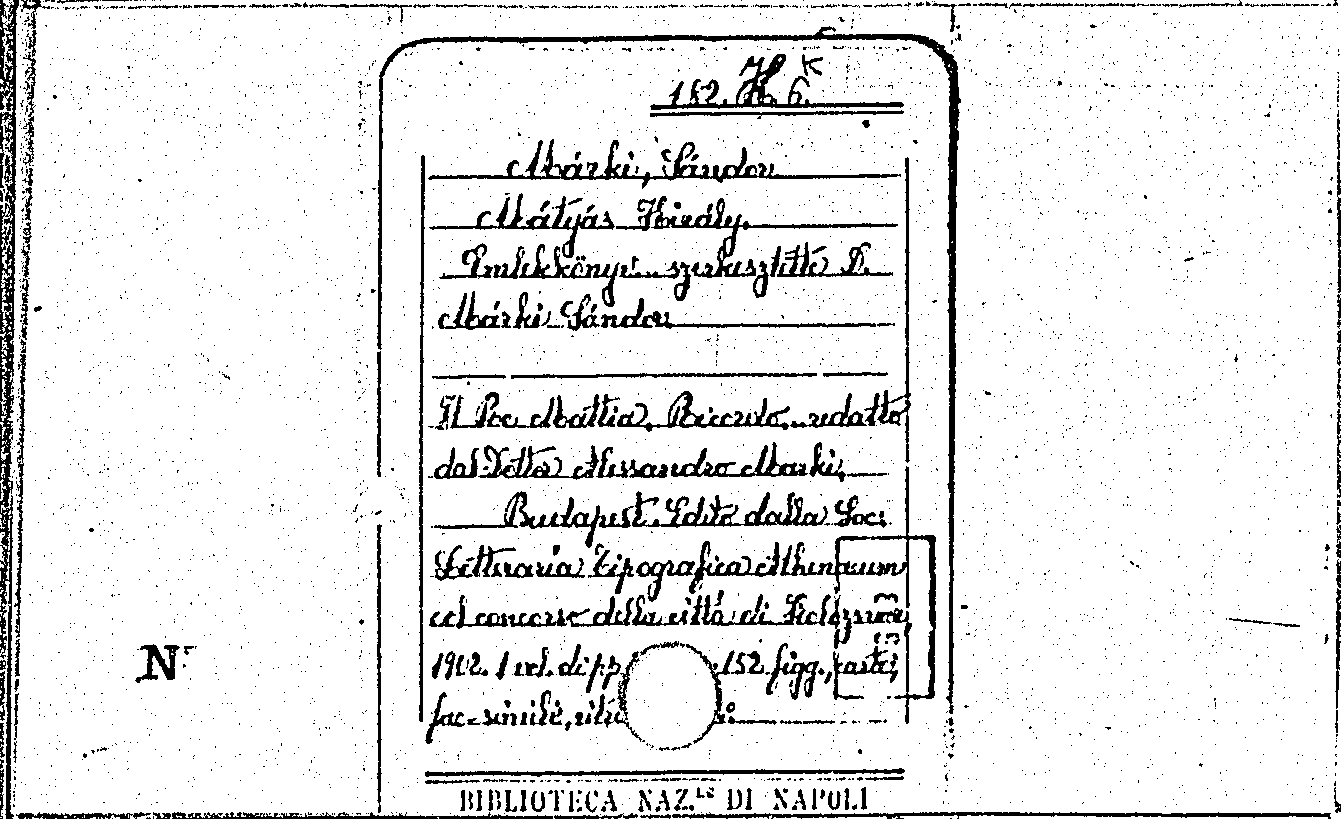 182. H. 6. K
Márki, Sándor
Mátyás Király.
Emlékkönyv.. szerkesztette D.
Márki Sándor
Il Re Mattia. Ricordo... redatto
dal Dottor Alessandro Marki,
Budapest. Edito dalla Soc:
Letteraria Tipografica Athenaeum
col concorso della città di Kolozsvár,
1902. 1 vol. di pp 152 figg., carte,
fac-simile,
N°
BIBLIOTECA NAZ.LE DI NAPOLI